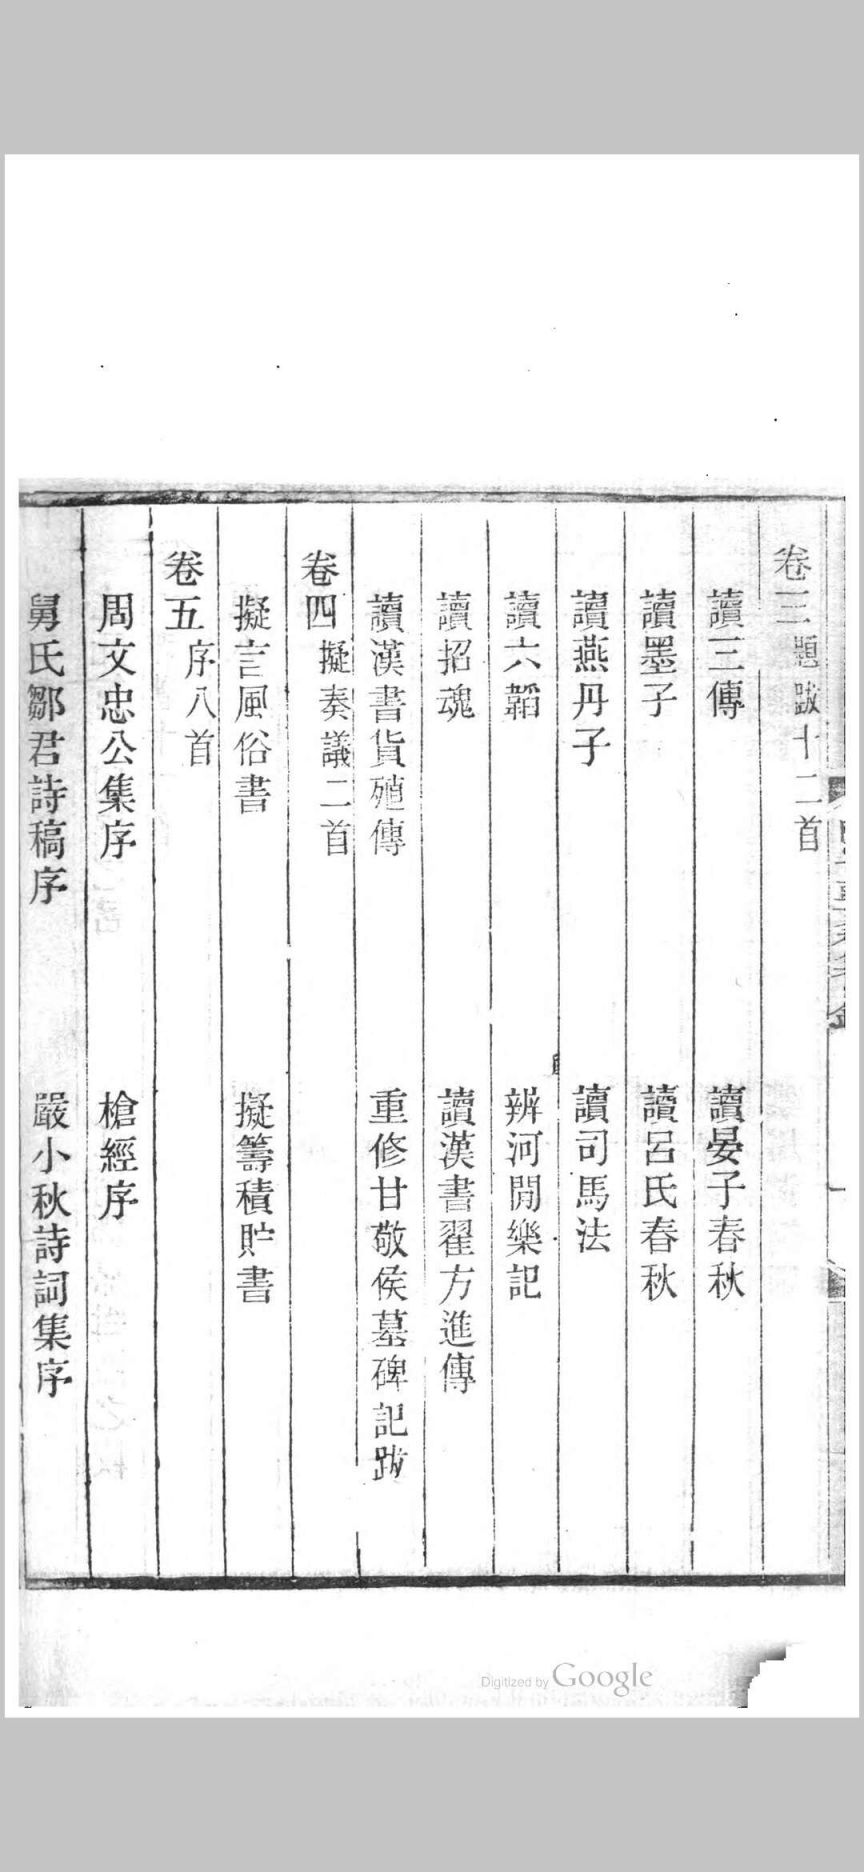 卷三 題跋十二首
讀三傳 讀晏子春秋
讀墨子 讀呂氏春秋
讀燕丹子 讀司馬法
讀六韜 辨河閒樂記
讀招魂 讀漢書翟方進傳
讀漢書貨殖傳 重修甘敬侯墓碑記跋
卷四 擬奏議二首
擬言風俗書 擬籌積貯書
卷五 序八首
周文忠公集序 槍經序
舅氏鄒君詩稿序 嚴小秋詩詞集序
Digitized by Google